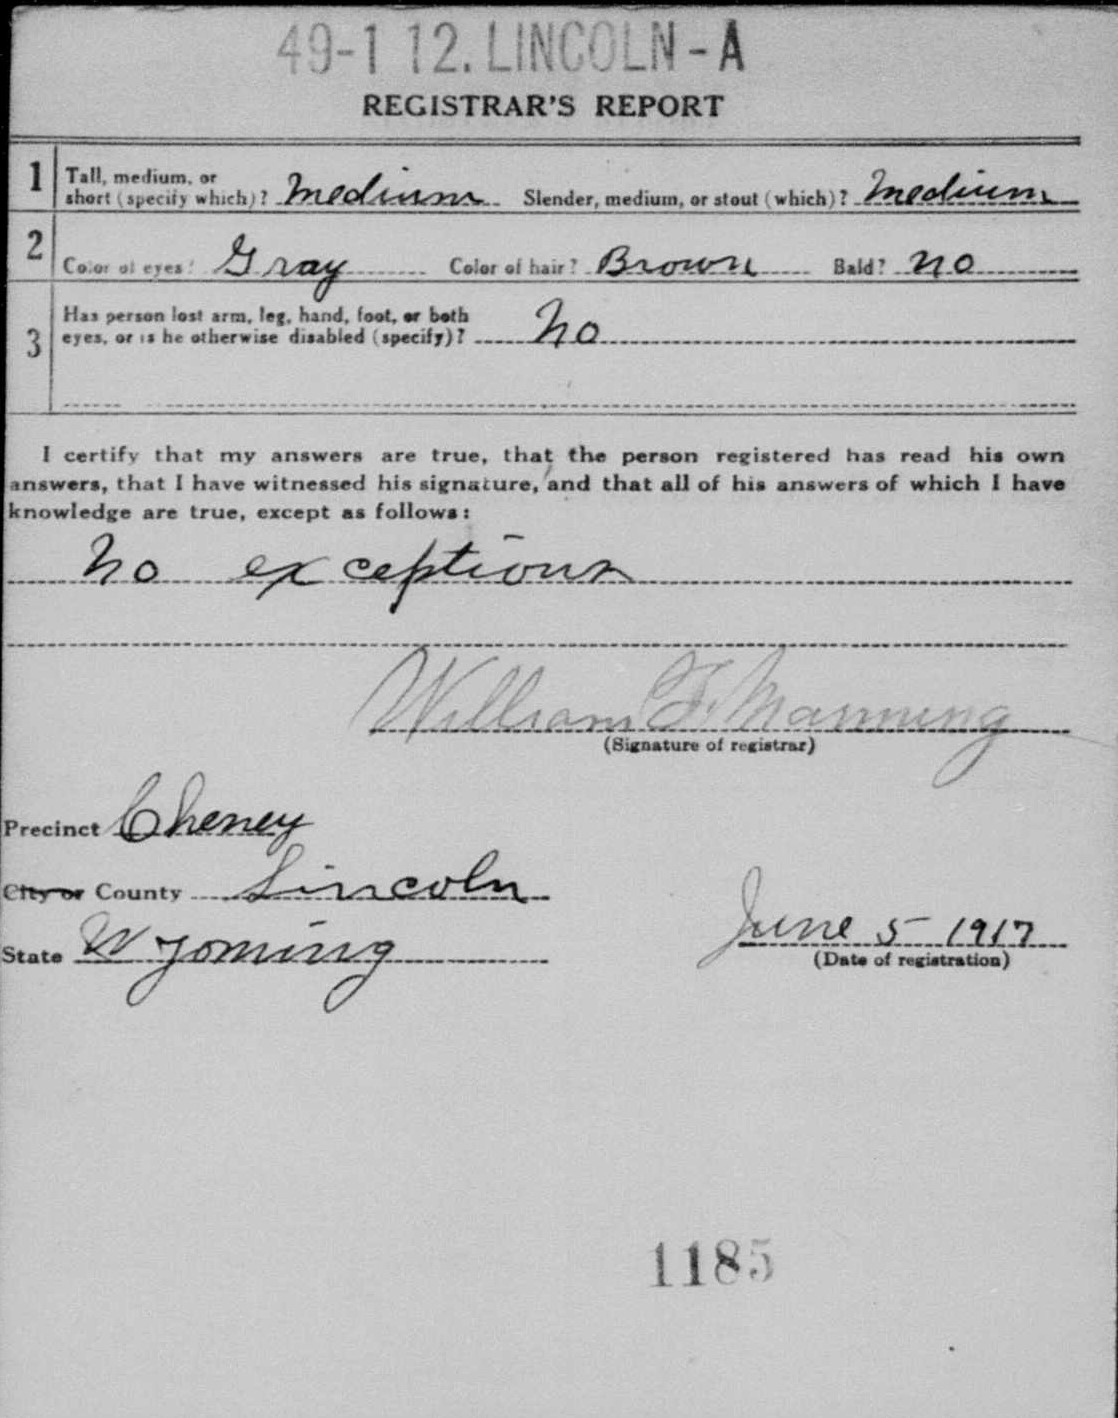 49-1 12. LINCOLN - A
REGISTRAR'S REPORT
1 Tall, medium, or
short (specify which)? Medium Slender, medium, or stout (which)? Medium
2 Color of eyes? Gray Color of hair? Brown Bald? No
3 Has person lost arm, leg, hand, foot, or both
eyes, or is he otherwise disabled (specify)? No
I certify that my answers are true, that the person registered has read his own
answers, that I have witnessed his signature, and that all of his answers of which I have
knowledge are true, except as follows:
No exceptions
William F. Manning
(Signature of registrar)
Precinct Cheney
City or County Lincoln
State Wyoming
June 5 1917
(Date of registration)
1185